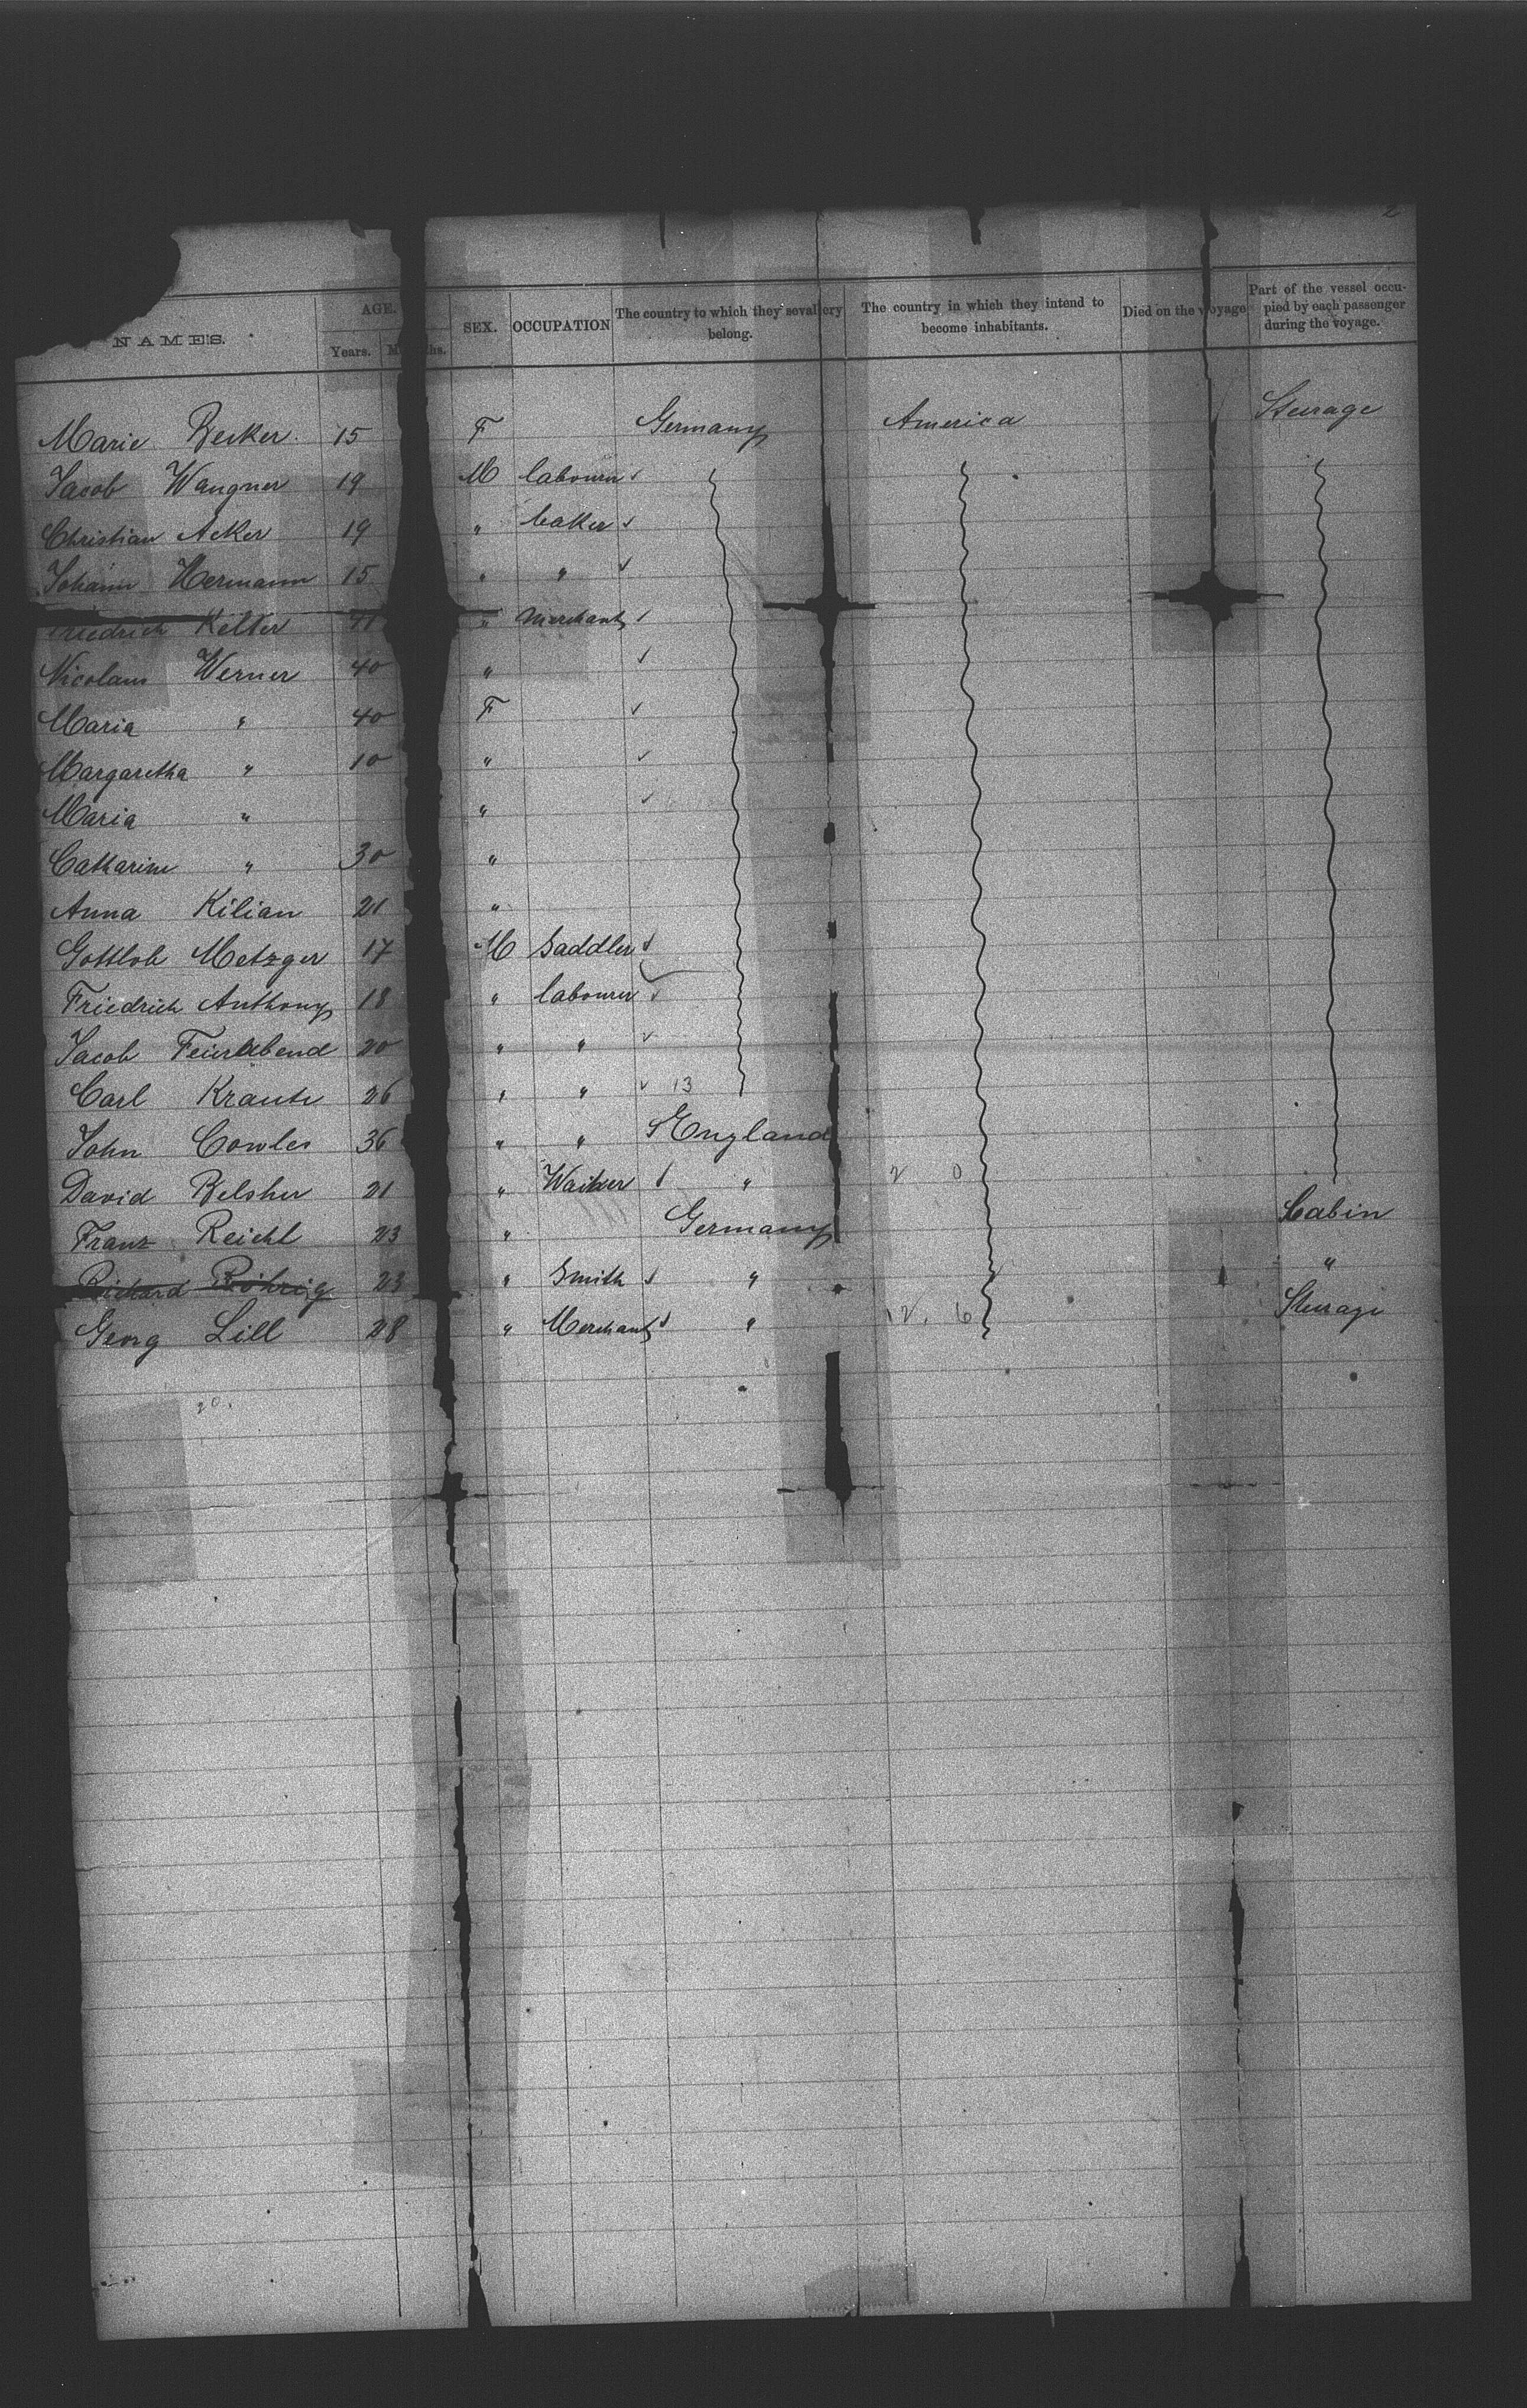 2
NAMES. AGE. SEX. OCCUPATION The country to which they severally belong. The country in which they intend to become inhabitants. Died on the voyage Part of the vessel occupied by each passenger during the voyage.
Years. Months.
Marie Becker 15 F Germany America Steerage
Jacob Wangner 19 M labourer
Christian Acker 19 " baker
Johann Hermann 15 " "
Friedrich Kelter " Merchant
Nicolaus Werner 40 "
Maria " 40 F
Margaretha " 10 "
Maria " "
Catharine " 30 "
Anna Kilian 21 "
Gottlob Metzger 17 M Saddler
Friedrich Anthony 18 " labourer
Jacob Feierabend 20 " "
Carl Krautr 26 " " 13
John Cowles 36 " " England
David Belsher 21 " Waiter " 2 0
Franz Reichl 23 " Germany Cabin
Richard Röhrig 23 " Smith " "
Georg Lill 28 " Merchant " 12. 6 Steerage
20.